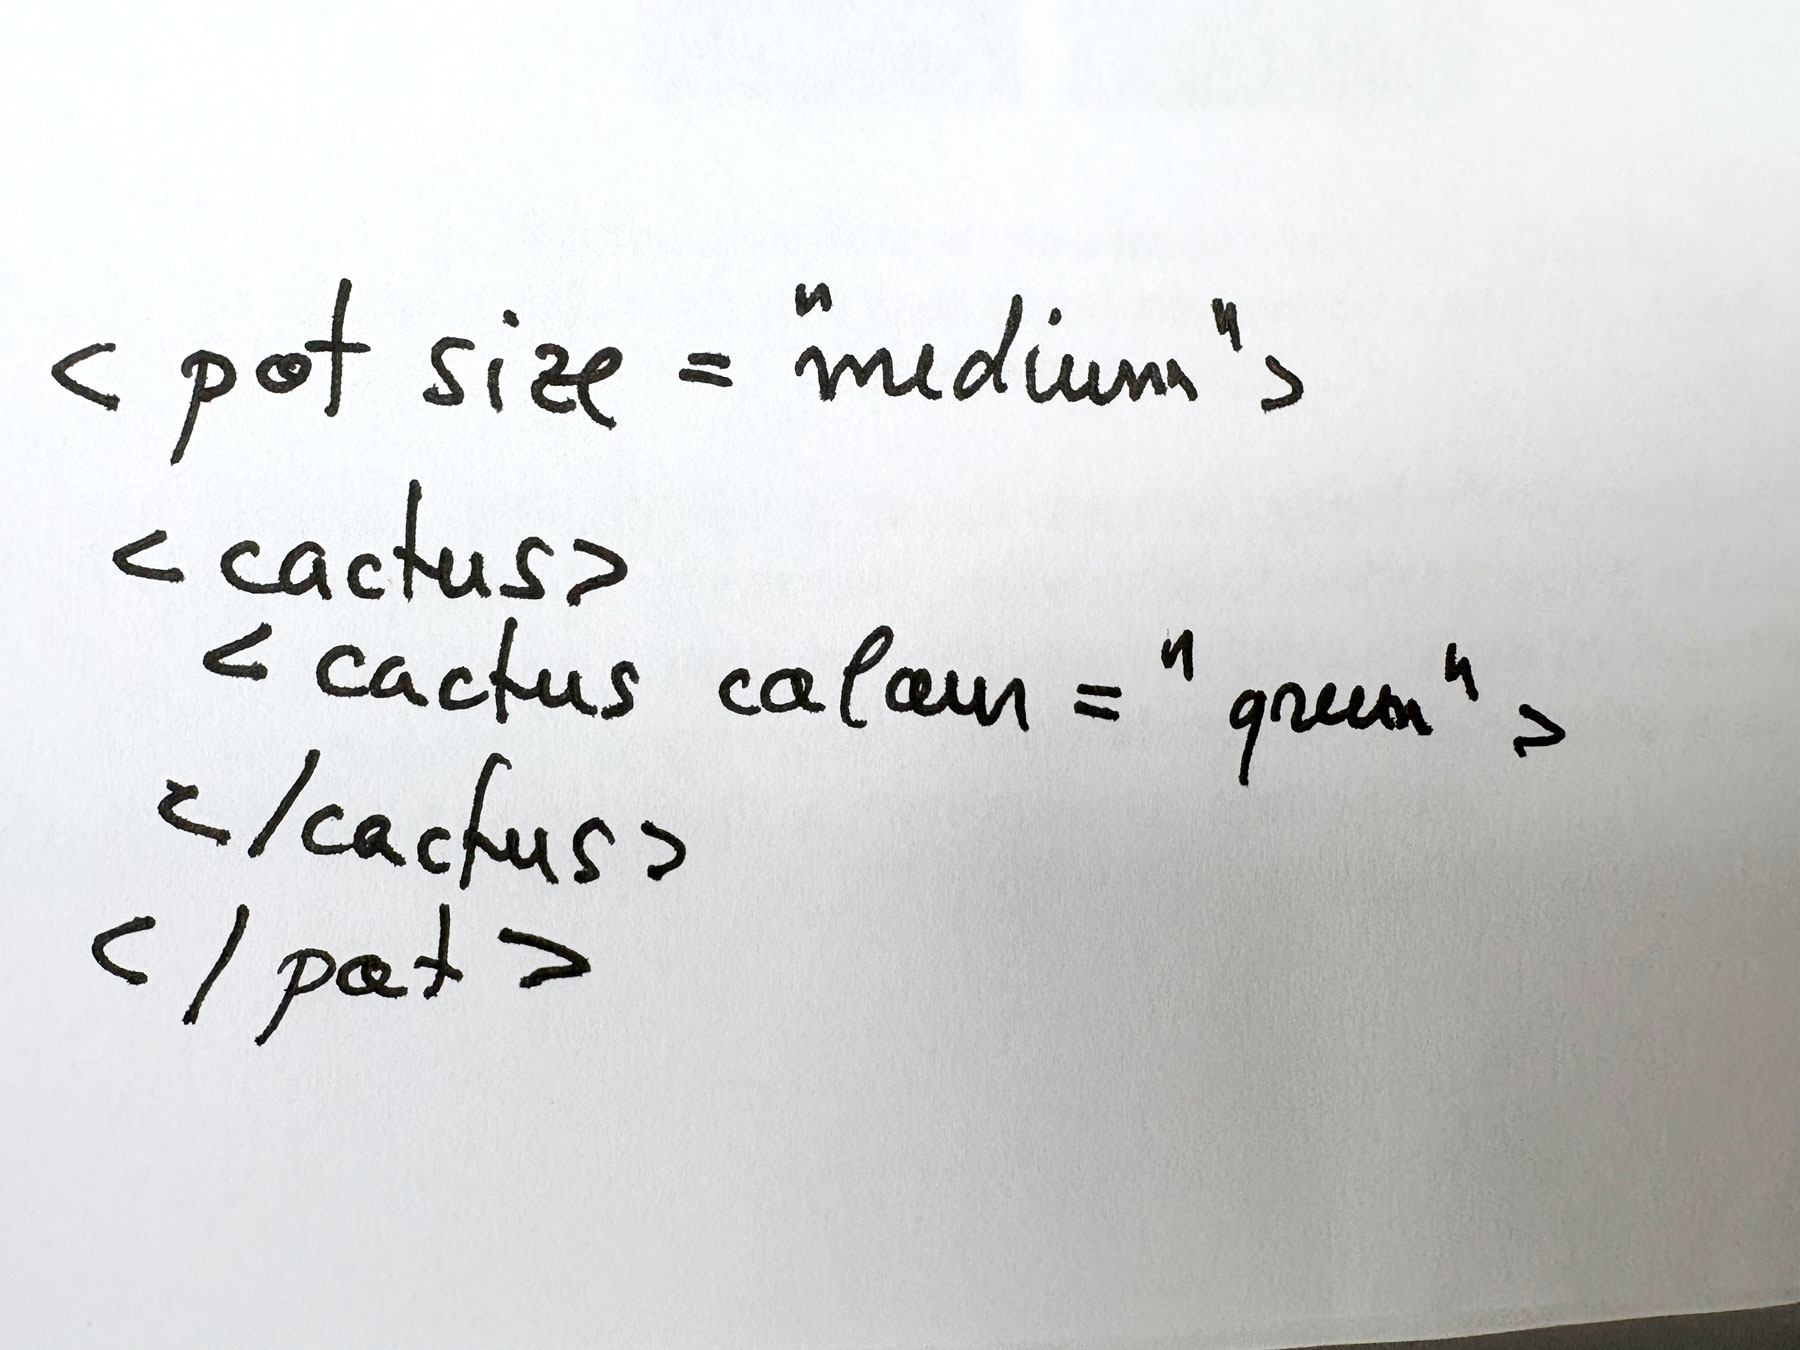 < pot size = "medium">
<cactus>
< cactus colour = "green">
</cactus>
</pot>